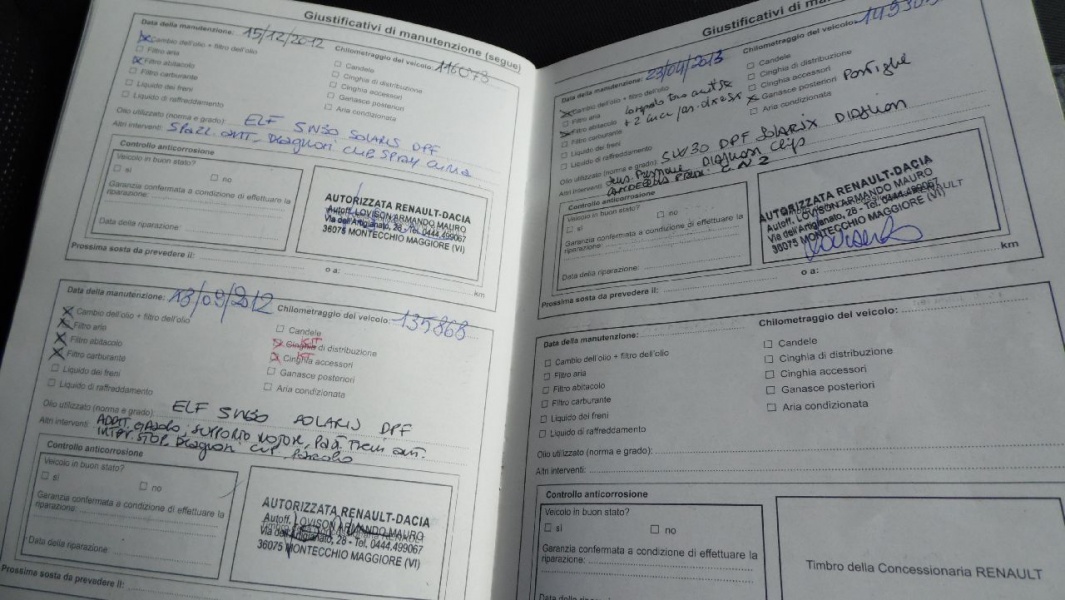 Giustificativi di manutenzione (segue)
Data della manutenzione: 15/12/2012 Chilometraggio del veicolo: 116073
Cambio dell'olio + filtro dell'olio
Filtro aria
Filtro abitacolo
Filtro carburante
Liquido dei freni
Liquido di raffreddamento
Candele
Cinghia di distribuzione
Cinghia accessori
Ganasce posteriori
Aria condizionata
Olio utilizzato (norma e grado): ELF 5W30 SOLARIS DPF
Altri interventi: SPAZZ. ANT. DIAGNOSI CLIP SPRAY CLIMA
Controllo anticorrosione
Veicolo in buon stato?
sì no
Garanzia confermata a condizione di effettuare la
riparazione:
Data della riparazione:
AUTORIZZATA RENAULT-DACIA
Autoff. LOVISON ARMANDO MAURO
Via dell'Artigianato, 28 - Tel. 0444.499067
36075 MONTECCHIO MAGGIORE (VI)
Prossima sosta da prevedere il: o a: km
Data della manutenzione: 13/09/2012 Chilometraggio del veicolo: 135868
Cambio dell'olio + filtro dell'olio
Filtro aria
Filtro abitacolo
Filtro carburante
Liquido dei freni
Liquido di raffreddamento
Candele
Cinghia di distribuzione KIT
Cinghia accessori KIT
Ganasce posteriori
Aria condizionata
Olio utilizzato (norma e grado): ELF 5W30 SOLARIS DPF
Altri interventi: ADDIT. GASOLIO, SUPPORTO MOTORE, PAST. FRENI ANT.
INTERR. STOP, DIAGNOSI CLIP
Controllo anticorrosione
Veicolo in buon stato?
sì no
Garanzia confermata a condizione di effettuare la
riparazione:
Data della riparazione:
AUTORIZZATA RENAULT-DACIA
Autoff. LOVISON ARMANDO MAURO
Via dell'Artigianato, 28 - Tel. 0444.499067
36075 MONTECCHIO MAGGIORE (VI)
Prossima sosta da prevedere il:
Giustificativi di
Data della manutenzione: 23/04/2013 Chilometraggio del veicolo:
Cambio dell'olio + filtro dell'olio
Filtro aria
Filtro abitacolo
Filtro carburante
Liquido dei freni
Liquido di raffreddamento
Candele
Cinghia di distribuzione
Cinghia accessori
Ganasce posteriori
Aria condizionata
Olio utilizzato (norma e grado): 5W30 DPF SOLARIX
Altri interventi: DIAGNOSI CLIPS
N°2
Controllo anticorrosione
Veicolo in buon stato?
sì no
Garanzia confermata a condizione di effettuare la
riparazione:
Data della riparazione:
AUTORIZZATA RENAULT-DACIA
Autoff. LOVISON ARMANDO MAURO
Via dell'Artigianato, 28 - Tel. 0444.499067
36075 MONTECCHIO MAGGIORE (VI)
Prossima sosta da prevedere il: o a: km
Data della manutenzione: Chilometraggio del veicolo:
Cambio dell'olio + filtro dell'olio
Filtro aria
Filtro abitacolo
Filtro carburante
Liquido dei freni
Liquido di raffreddamento
Candele
Cinghia di distribuzione
Cinghia accessori
Ganasce posteriori
Aria condizionata
Olio utilizzato (norma e grado):
Altri interventi:
Controllo anticorrosione
Veicolo in buon stato?
sì no
Garanzia confermata a condizione di effettuare la
riparazione:
Timbro della Concessionaria RENAULT